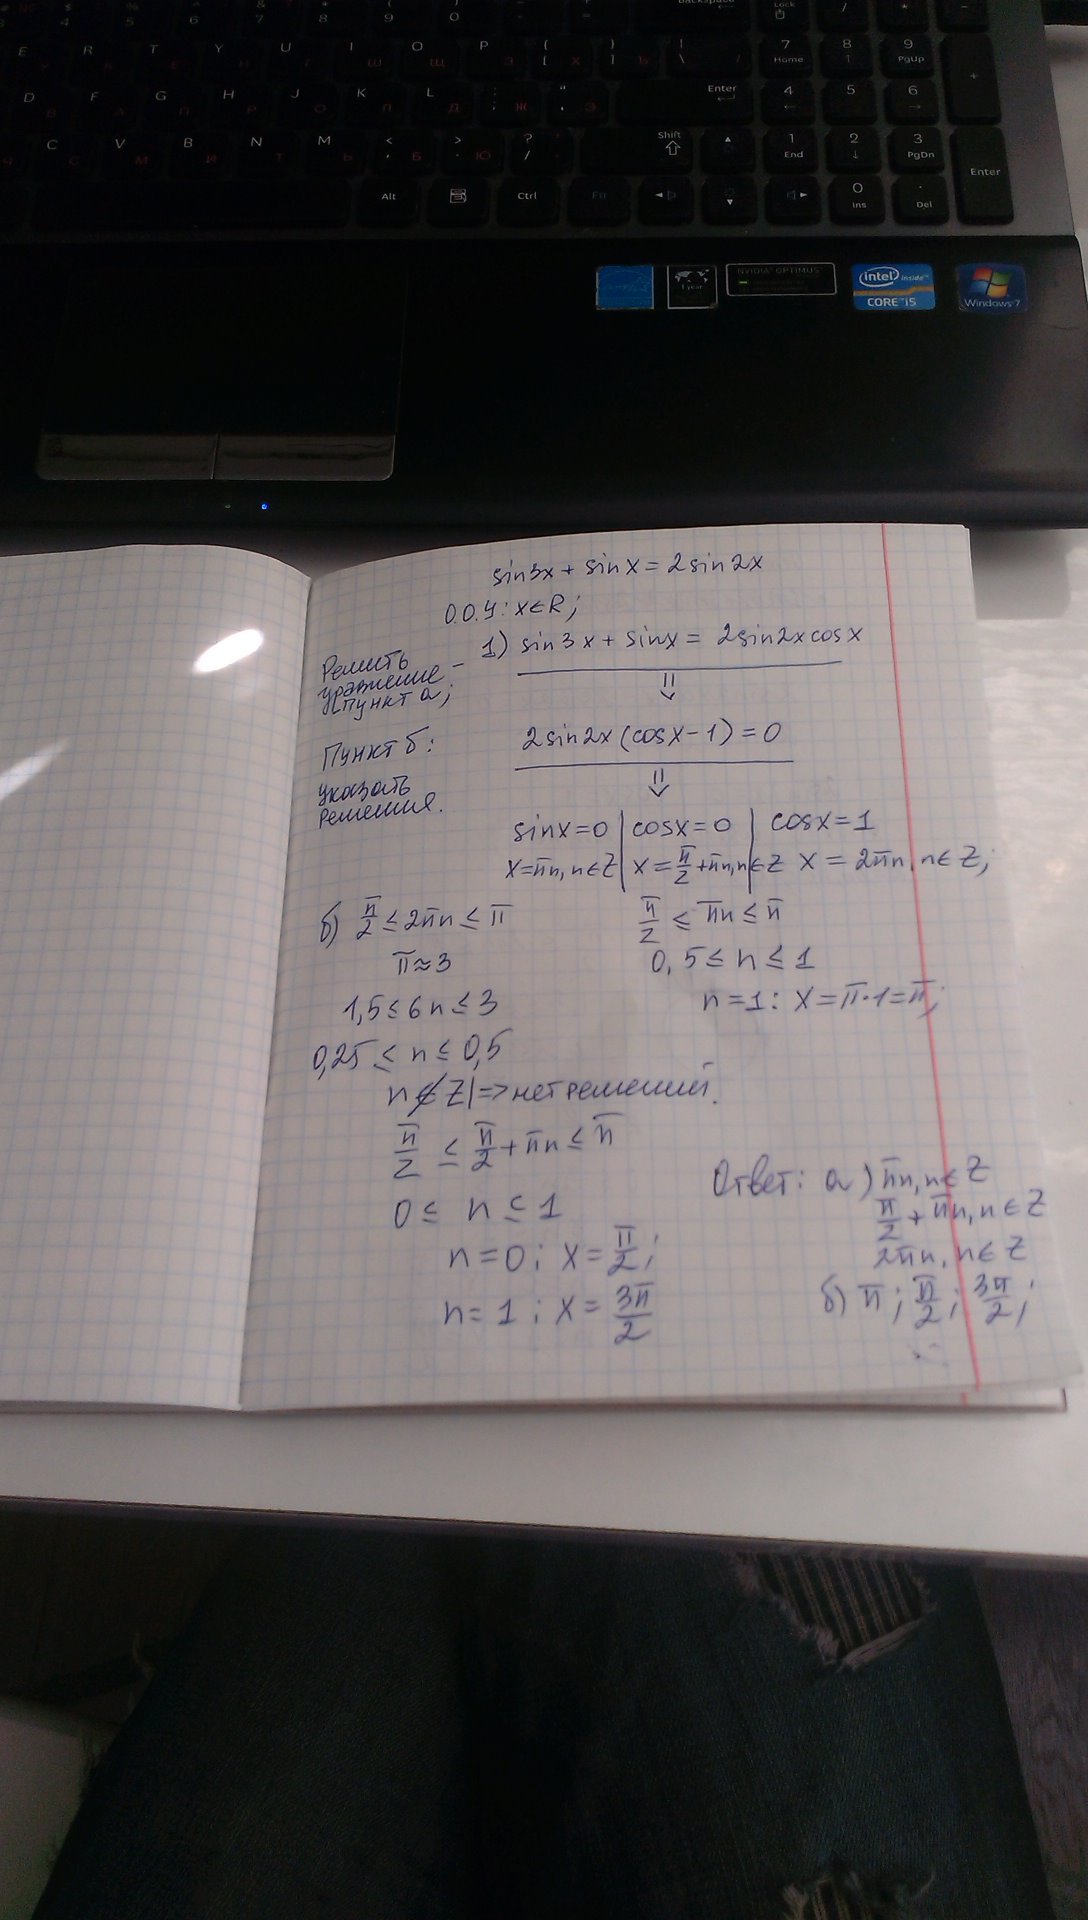 Backspace
Lock
$ % & * ( ) _ + / * -
4 5 6 7 8 9 0 - =
E R T Y U I O P { [ } ] | \ 7 Home 8 ↑ 9 PgUp +
D F G H J K L : ; " ' Enter 4 ← 5 6 →
C V B N M < , > . ? / Shift 1 End 2 ↓ 3 PgDn Enter
Alt Ctrl Fn 0 Ins . Del
1 year
NVIDIA OPTIMUS
intel inside™
CORE™ i5
Windows 7
sin3x + sinx = 2sin2x
О.О.У: x∈R;
Решить уравнение - пункт а;
1) sin3x + sinx = 2sin2xcosx
⇓
Пункт б:
указать
решения.
2sin2x(cosx-1)=0
⇓
sinx=0 | cosx=0 | cosx=1
x=πn, n∈Z | x=π/2+πn, n∈Z x=2πn, n∈Z;
б) π/2 ≤ 2πn ≤ π
π≈3
1,5≤6n≤3
0,25 ≤ n ≤ 0,5
n∉Z|=>нет решений.
π/2 ≤ πn ≤ π
0,5≤n≤1
n=1: x=π·1=π;
π/2 ≤ π/2+πn ≤ π
0≤ n ≤1
n=0; x=π/2;
n=1; x=3π/2
Ответ: а) πn, n∈Z
π/2 + πn, n∈Z
2πn, n∈Z
б) π; π/2; 3π/2;